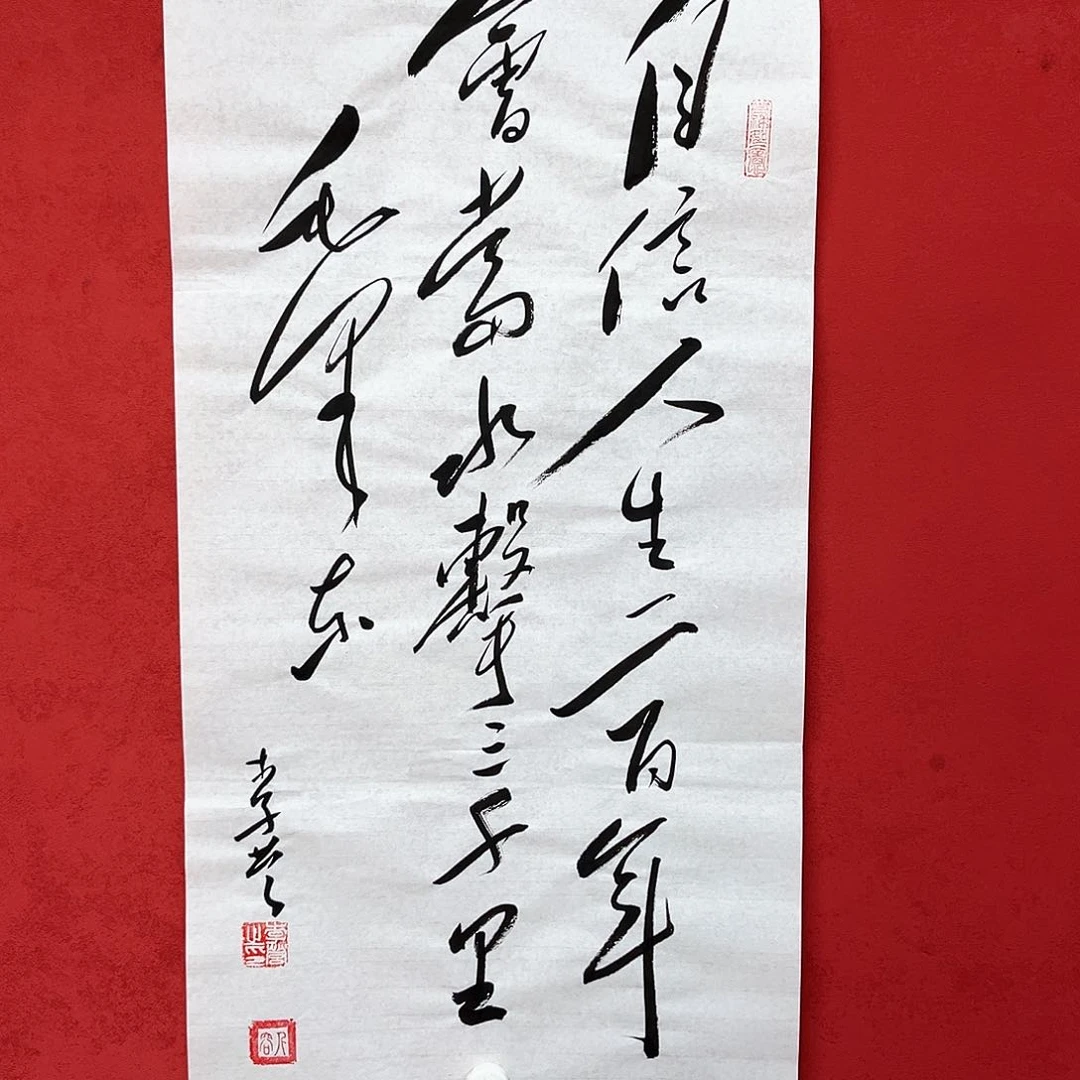 自信人生二百年
會當水擊三千里
毛澤东